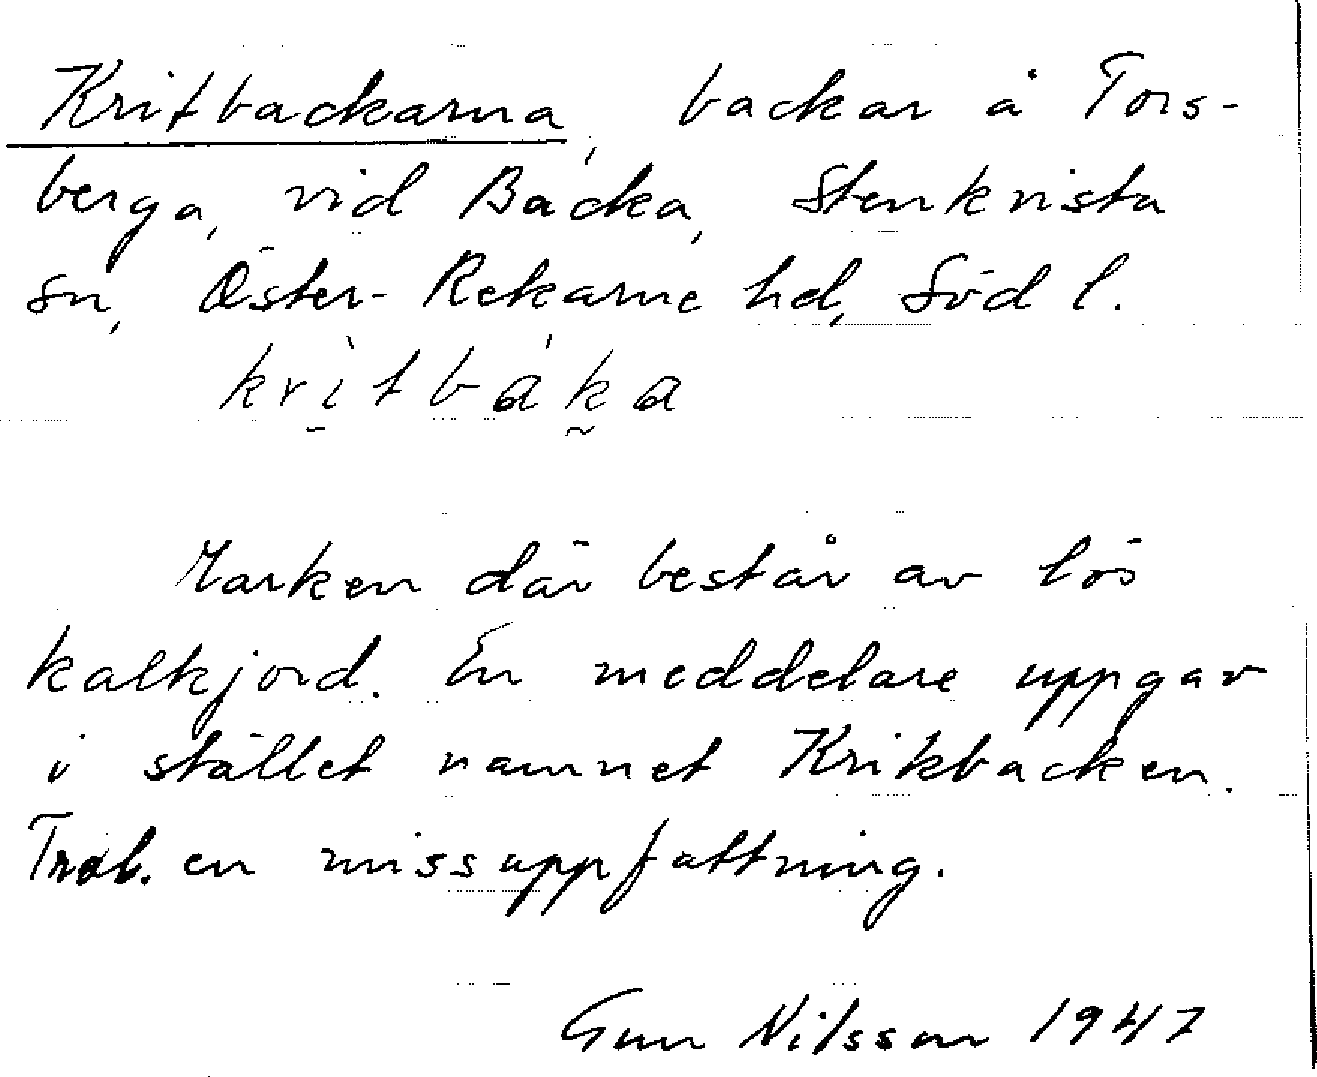 Kritbackarna, backar å Tors-
berga, vid Backa, Stenkvista
sn, Öster-Rekarne hd, Söd l.
krìtbáka
Marken där består av lös
kalkjord. En meddelare uppgav
i stället namnet Krikbacken.
Trol. en missuppfattning.
Gun Nilsson 1947